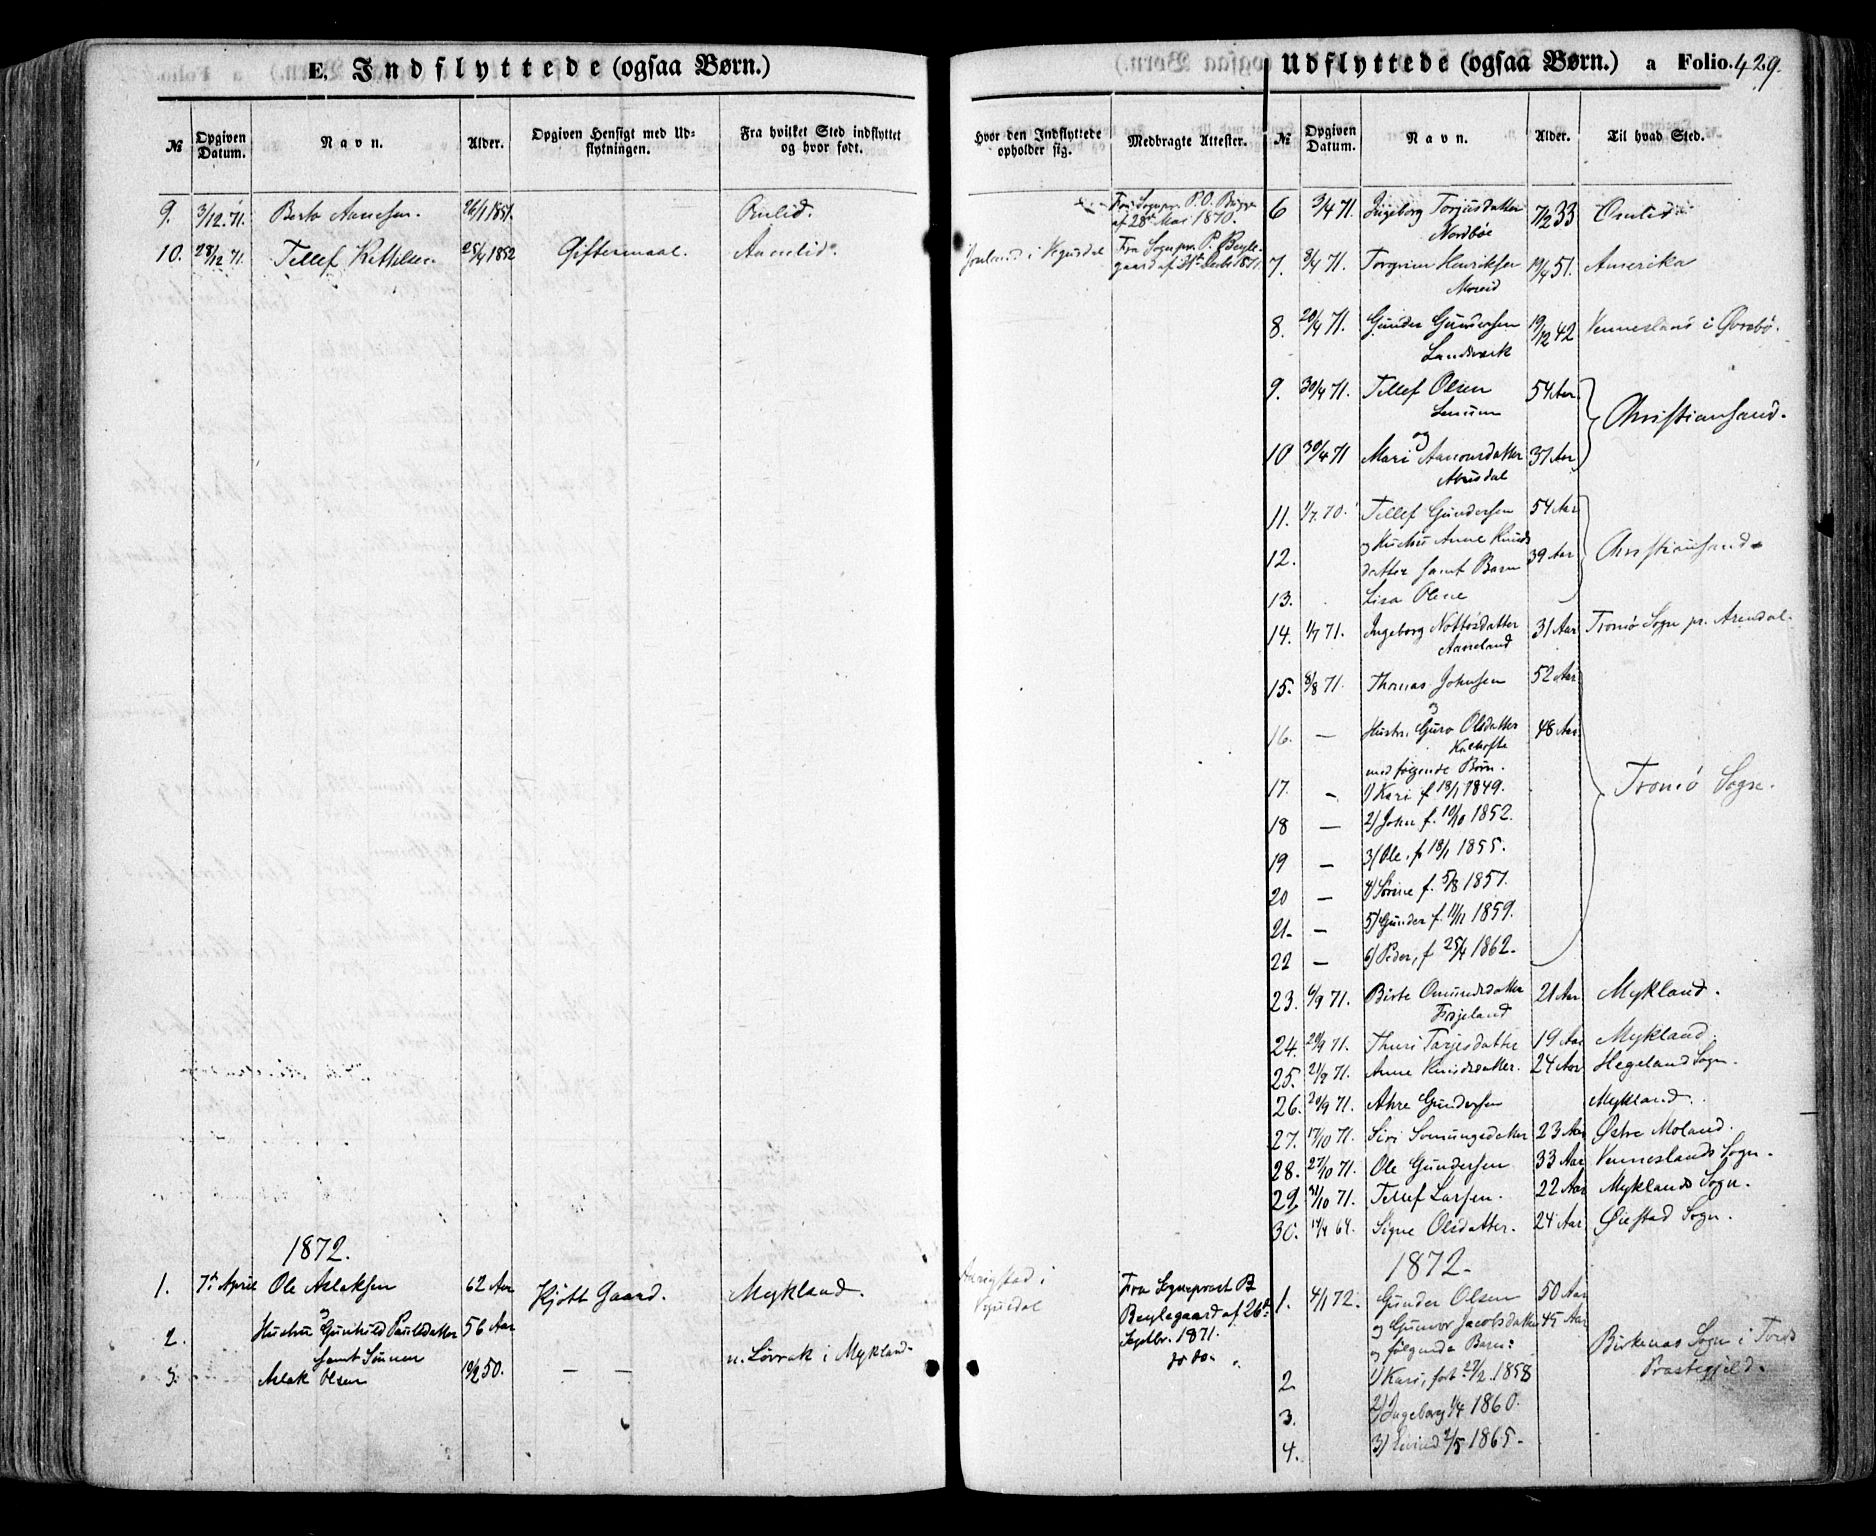 E. Indflyttede (ogsaa Børn.)
№ Opgiven Datum. Navn. Alder. Opgiven Hensigt med Udflytningen. Fra hvilket Sted indflyttet og hvor født.
Hvor den Indflyttede opholder sig. Medbragte Attester.
9. 3/12.71. Berte 26/1 1851.
af 28de Mai 1870.
10. 28/12 71. Tellef Kittilsen 25/4 1852 Giftermaal. Aamlid. i Vegusdal Fra Sognepr. P. Beyle-
gaard af 21de
1872.
1. 7de April Ole Aslaksen 62 Aar Kjøbt Gaard. Mykland. i Vegusdal Fra Sogneprest B
Beylegaard af 26de
Septbr. 1871.
2. Hustru Gunhild Paulsdatter 56 Aar
samt Sønnen
3. Aslak Olsen 50. — — i Mykland. do do.
Udflyttede (ogsaa Børn.) a Folio. 429.
№ Opgiven Datum. Navn. Alder. Til hvad Sted.
6 3/4 71. Ingeborg Torjusdatter 7/2 33
Nordbøe
7. 8/4 71. Torgrim Henriksen 19/4 51. Amerika
8. 20/4 71. Gunder Gundersen 19/12 42 Vennesland i Øvrebø.
Landsverk
9. 30/4 71. Tellef Olsen 54 Aar.
og
10 30/4 71 Mari 37 Aar Christiansand.
11. 1/7.70. Tellef Gundersen 54 Aar
12. og Hustru Anne Knuds 39 Aar
datter samt Barn Christiansand
13. Lisa Oline
14. 1/7 71. Ingeborg Nottosdatter 31 Aar Tromö Sogn pr. Arendal.
Aaneland
15. 8/8 71. Thomas Johnsen 52 Aar
og
16. — Hustr. Guro Olsdatter 48 Aar
med følgende Børn.
17. — 1) Kari f 18/1 1849. Tromö Sogn.
18 — 2) John f. 10/10 1852.
19 — 3) Ole. f 18/1 1855.
20 — 4) Sörine f. 5/8 1857.
21. — 5) Gunder f. 11/12 1859.
22 — 6) Peder, f 25/4 1862.
23. 6/9 71. Birte Omundsdatter 21 Aar Mykland.
Frøjeland
24. 29/9 71. Thuri Tarjesdatter 19 Aar Mykland.
25. 21/9 71. Anne Knudsdatter. 24 Aar Hegeland Sogn.
26. 20/9 71. Gundersen Mykland.
27. 17/10 71. Siri Sonungsdatter 23 Aar Østre Moland.
28. 27/10 71. Ole Gundersen 33 Aar Venneslands Sogn.
29. 31/10 71. Tellef Larsen. 22 Aar Myklands Sogn.
30. 14/4 64. Signe Olsdatter. 24 Aar. Øiestad Sogn.
1872.
1. 4/1 72. Gunder Olsen 50 Aar
og Gunvor Jacobsdatter 45 Aar
og følgende Barn: Birkenæs Sogn i Tveds
2. 1) Kari, født 27/2. 1858 Præstegjeld.
3. 2) Ingeborg 1/4 1860.
4. 3) 2/5 1865.